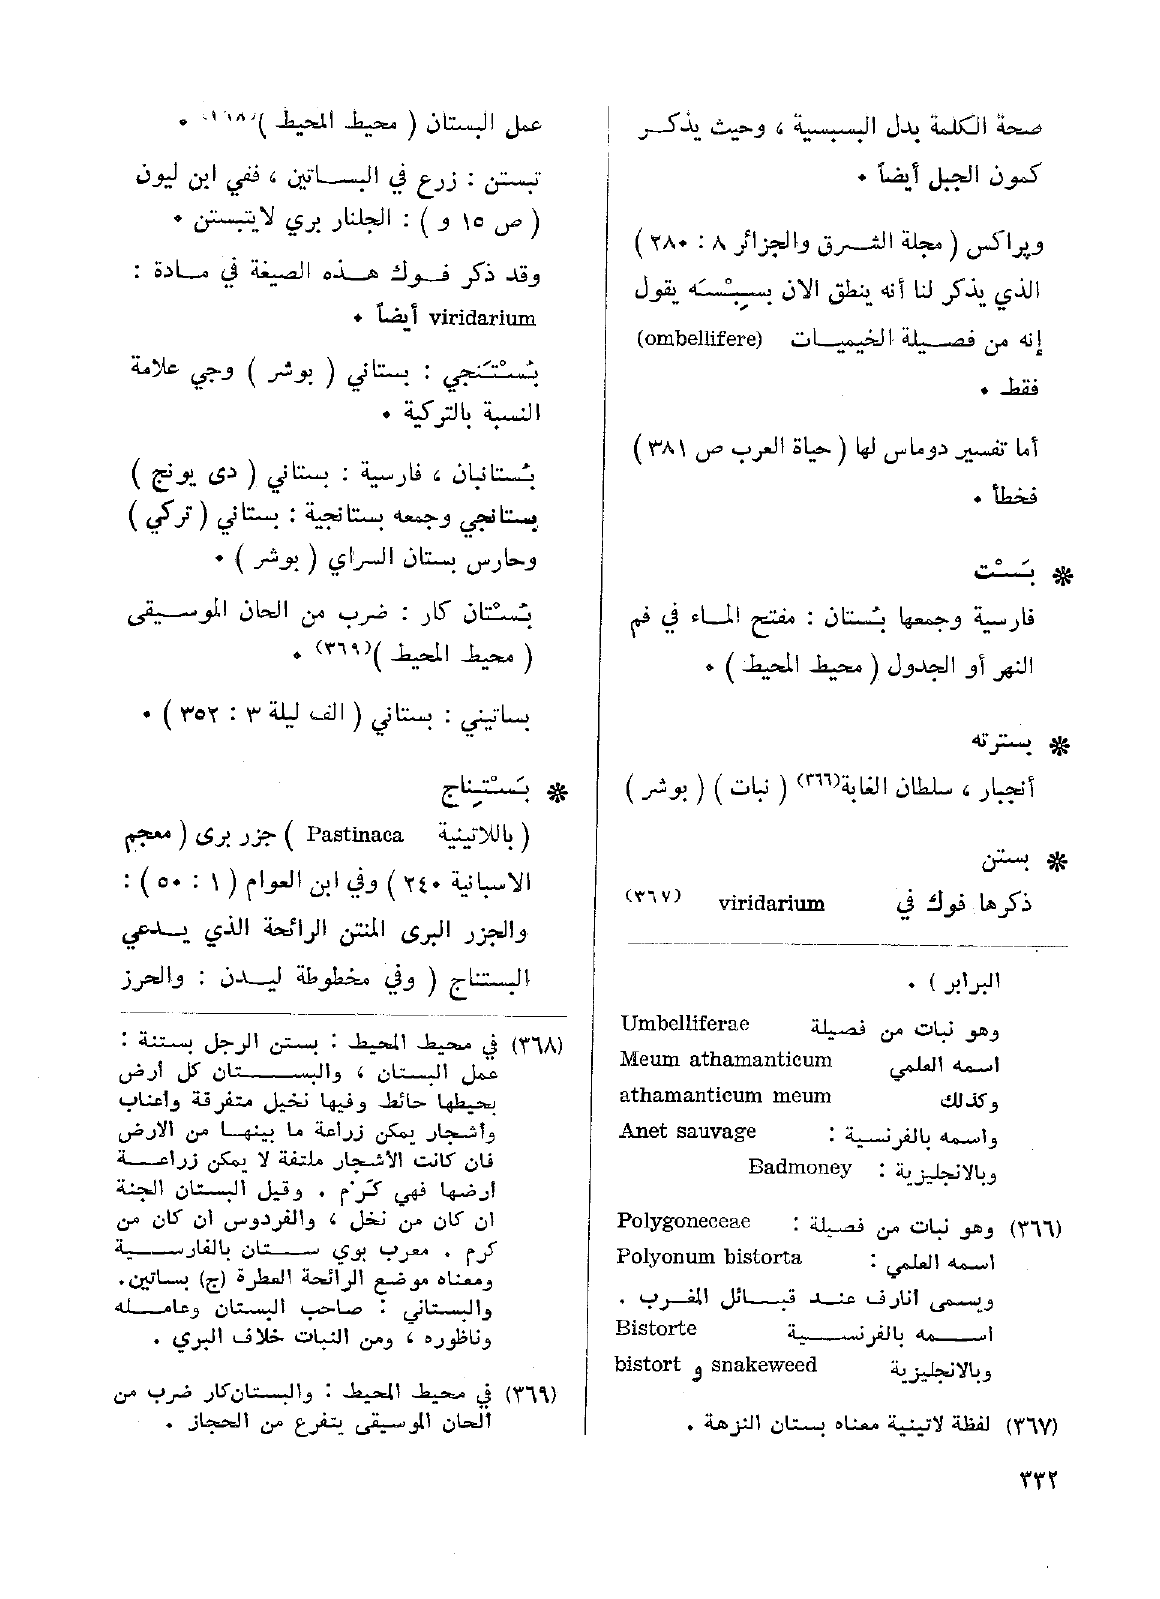 صحة الكلمة بدل البسبسية ، وحيث يذكر
كمون الجبل أيضاً .
وپراكس ( مجلة الشرق والجزائر ٨ : ٢٨٠ )
الذي يذكر لنا أنه ينطق الان بسِبْسَه يقول
إنه من فصيلة الخيميات (ombellifere)
فقط .
أما تفسير دوماس لها ( حياة العرب ص ٣٨١ )
فخطأ .
❋ بَسْت
فارسية وجمعها بُستان : مفتح الماء في فم
النهر أو الجدول ( محيط المحيط ) .
❋ بسترته
أنجبار ، سلطان الغابة(٣٦٦) ( نبات ) ( بوشر )
❋ بستن
ذكرها فوك في viridarium (٣٦٧)
البرابر ) .
وهو نبات من فصيلة Umbelliferae
اسمه العلمي Meum athamanticum
وكذلك athamanticum meum
واسمه بالفرنسية : Anet sauvage
وبالانجليزية : Badmoney
(٣٦٦) وهو نبات من فصيلة : Polygoneceae
اسمه العلمي : Polyonum bistorta
ويسمى انارف عند قبائل المغرب .
اسمه بالفرنسية Bistorte
وبالانجليزية snakeweed و bistort
(٣٦٧) لفظة لاتينية معناه بستان النزهة .
عمل البستان ( محيط المحيط )(٣٦٨) .
تبستن : زرع في البساتين ، ففي ابن ليون
( ص ١٥ و ) : الجلنار بري لايتبستن .
وقد ذكر فوك هذه الصيغة في مادة :
viridarium أيضاً .
بُسْتَنجي : بستاني ( بوشر ) وجي علامة
النسبة بالتركية .
بُستانبان ، فارسية : بستاني ( دى يونج )
بستانجي وجمعه بستانجية : بستاني ( تركي )
وحارس بستان السراي ( بوشر ) .
بُسْتان كار : ضرب من الحان الموسيقى
( محيط المحيط )(٣٦٩) .
بساتيني : بستاني ( الف ليلة ٣ : ٣٥٢ ) .
❋ بَسْتِناج
( باللاتينية Pastinaca ) جزر برى ( معجم
الاسبانية ٢٤٠ ) وفي ابن العوام ( ١ : ٥٠ ) :
والجزر البرى المنتن الرائحة الذي يدعي
البستناج ( وفي مخطوطة ليدن : والحرز
(٣٦٨) في محيط المحيط : بستن الرجل بستنة :
عمل البستان ، والبستان كل ارض
يحيطها حائط وفيها نخيل متفرقة واعناب
واشجار يمكن زراعة ما بينها من الارض
فان كانت الاشجار ملتفة لا يمكن زراعة
ارضها فهي كرم . وقيل البستان الجنة
ان كان من نخل ، والفردوس ان كان من
كرم . معرب بوي ستان بالفارسية
ومعناه موضع الرائحة العطرة (ج) بساتين.
والبستاني : صاحب البستان وعامله
وناظوره ، ومن النبات خلاف البري .
(٣٦٩) في محيط المحيط : والبستان‌كار ضرب من
الحان الموسيقى يتفرع من الحجاز .
٣٣٢